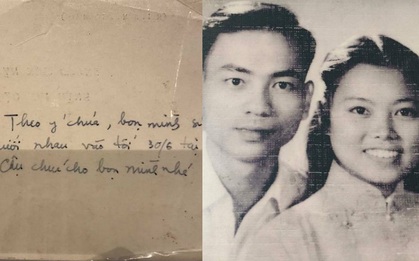 Theo ý chúa, bọn mình
nhau vào tối 30/6 tại
Cầu chúa cho bọn mình nhé